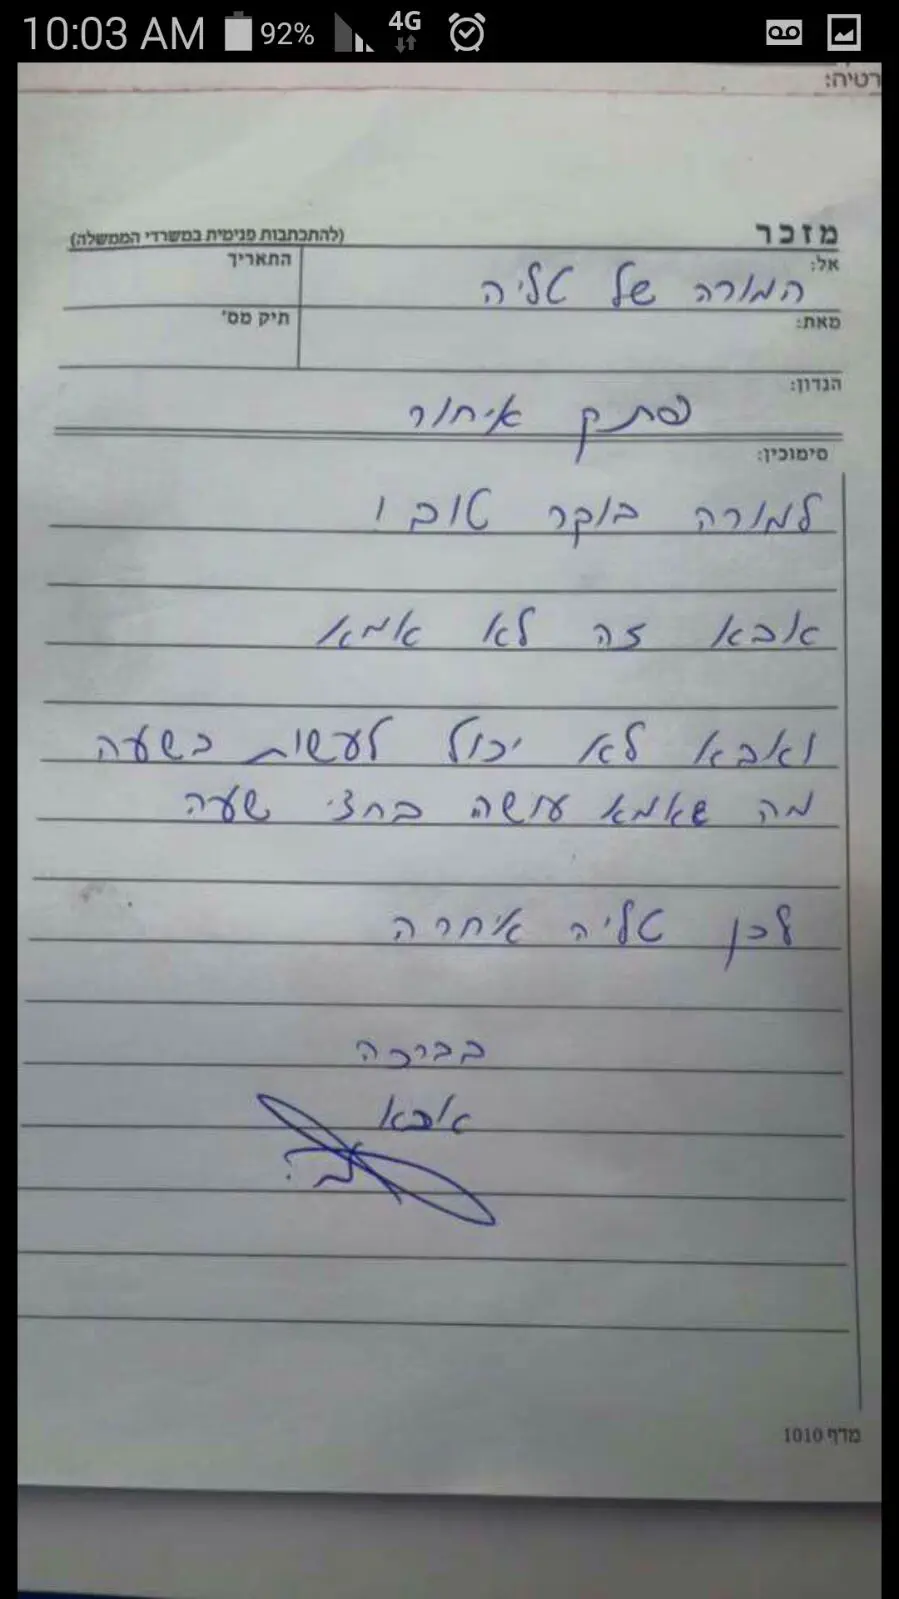 10:03 AM 92% 4G
רטיה:
מזכר (להתכתבות פנימית במשרדי הממשלה)
אל: המורה של טליה התאריך
מאת: תיק מס'
הנדון: פתק איחור
סימוכין:
למורה בוקר טוב !
אבא זה לא אמא
ואבא לא יכול לעשות בשעה
מה שאמא עושה בחצי שעה
לכן טליה איחרה
בברכה
אבא
מדף 1010